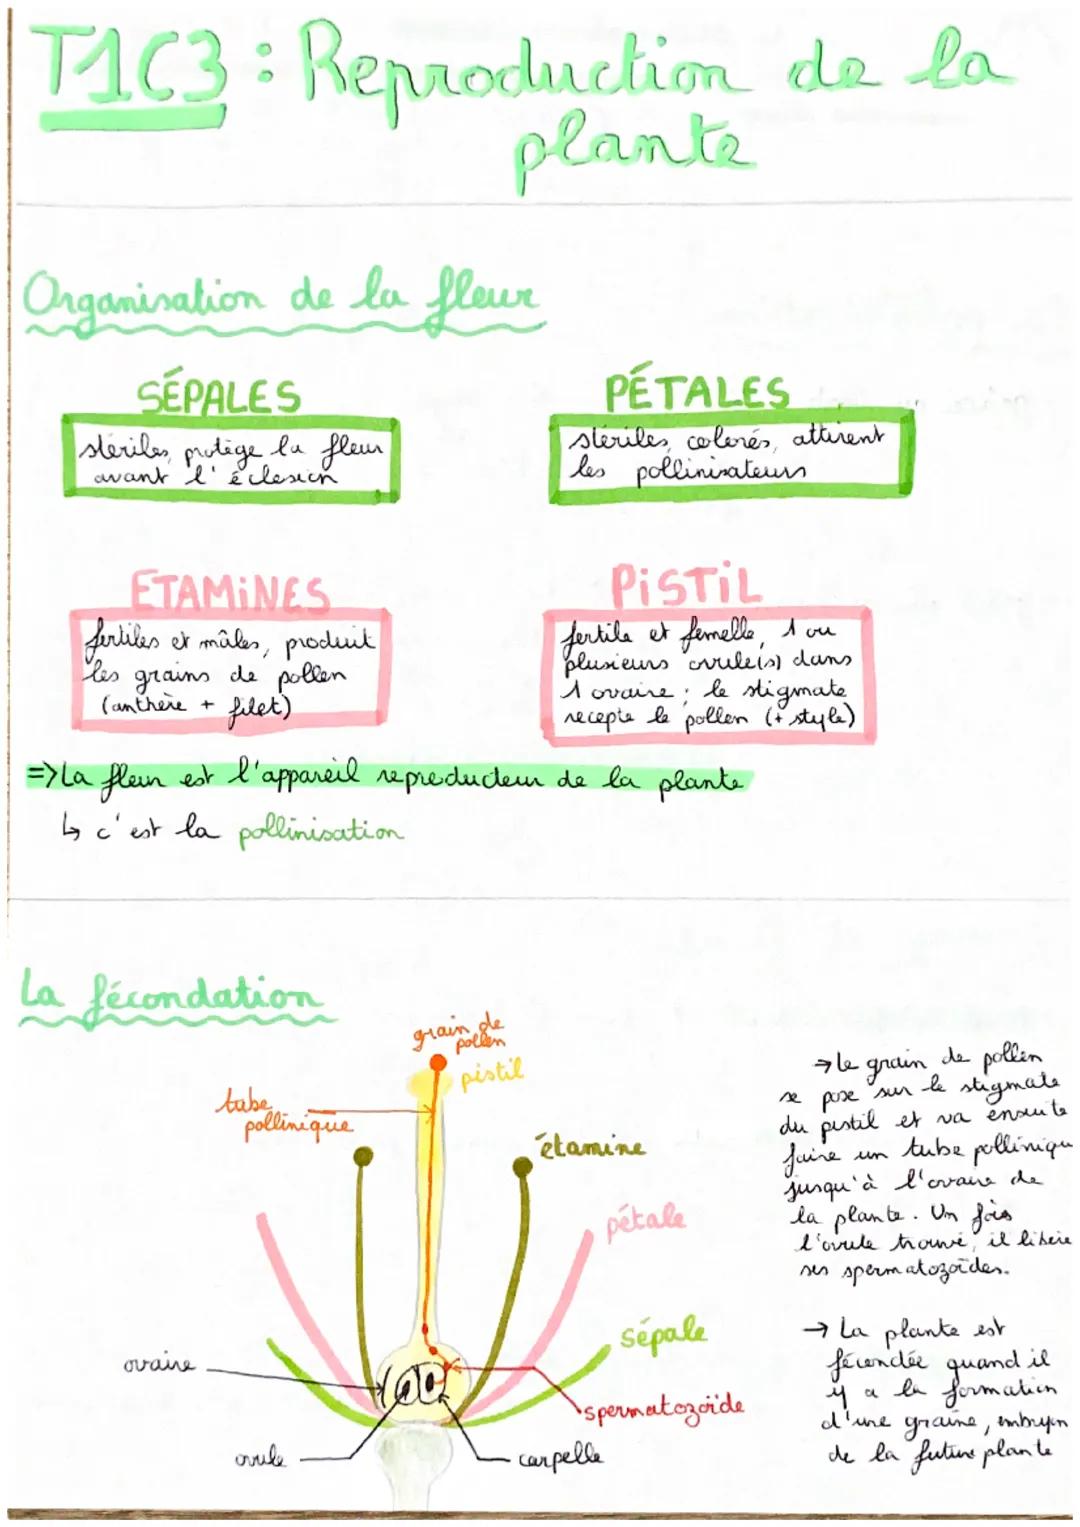 T1C3 : Reproduction de la
plante
Organisation de la fleur
SÉPALES
stériles, protège la fleur
avant l'éclosion
PÉTALES
stériles, colorés, attirent
les pollinisateurs
ETAMINES
fertiles et mâles, produit
les grains de pollen
(anthère + filet)
PISTIL
fertile et femelle, 1 ou
plusieurs ovule(s) dans
1 ovaire ; le stigmate
recepte le pollen (+ style)
=> La fleur est l'appareil reproducteur de la plante
↳ c'est la pollinisation
La fécondation
grain de
pollen
pistil
tube
pollinique
étamine
pétale
sépale
ovaire
spermatozoïde
ovule
carpelle
→ le grain de pollen
se pose sur le stigmate
du pistil et va ensuite
faire un tube polliniqu
jusqu'à l'ovaire de
la plante. Un fois
l'ovule trouvé, il libère
ses spermatozoïdes.
→ La plante est
fécondée quand il
y a la formation
d'une graine, embryon
de la future plante